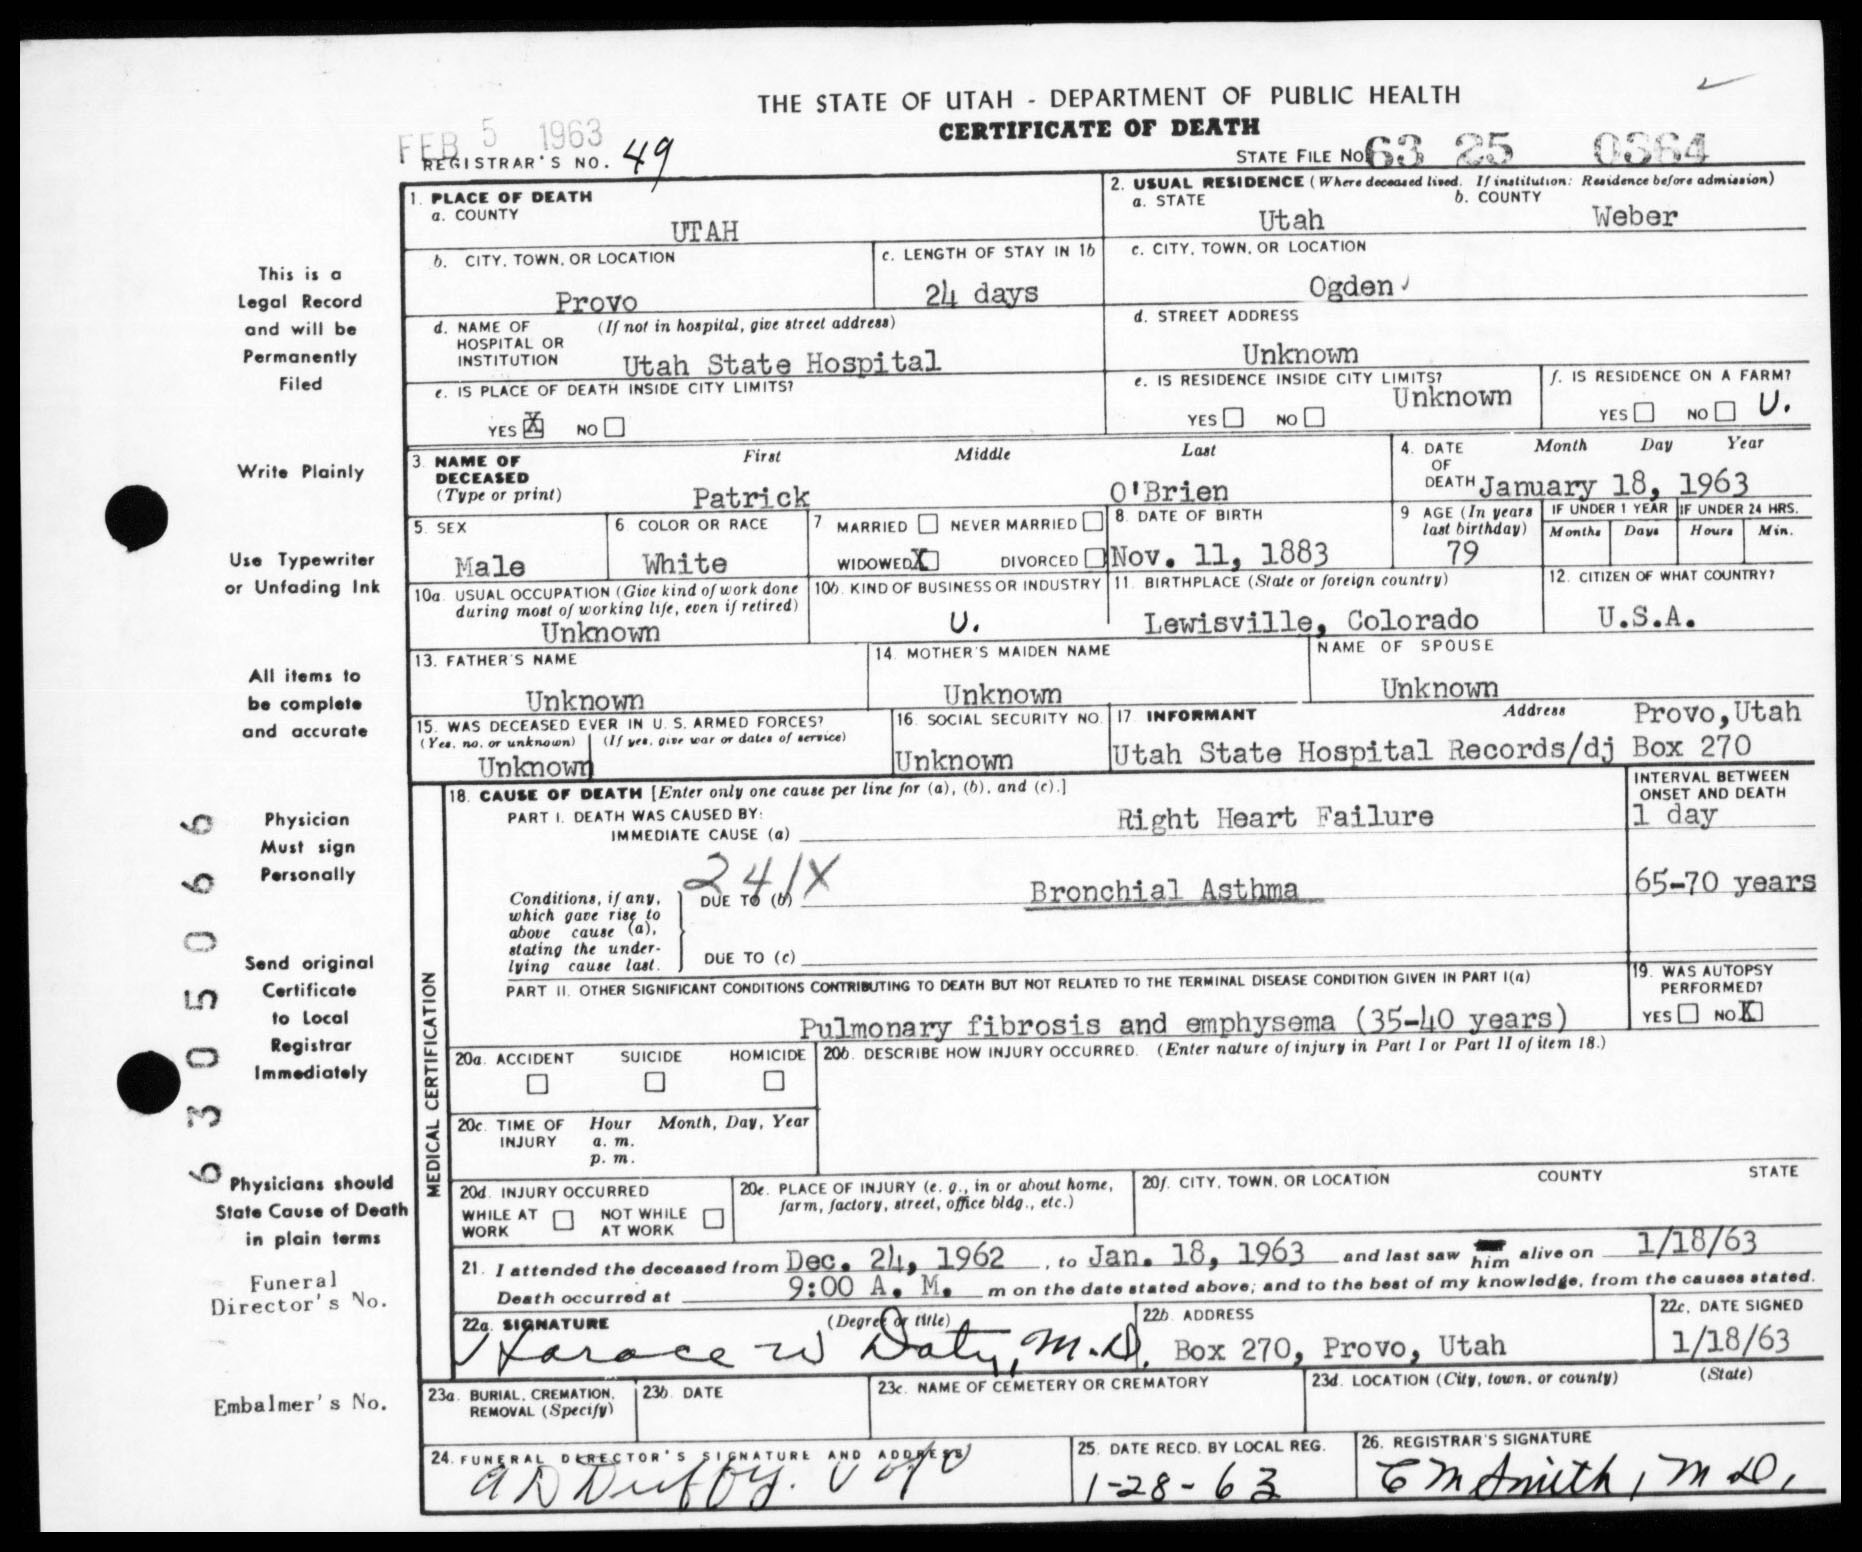 THE STATE OF UTAH - DEPARTMENT OF PUBLIC HEALTH
CERTIFICATE OF DEATH
FEB 5 1963
REGISTRAR'S NO. 49
STATE FILE NO. 63 25 0364
1. PLACE OF DEATH
a. COUNTY
UTAH
2. USUAL RESIDENCE (Where deceased lived. If institution: Residence before admission)
a. STATE
Utah
b. COUNTY
Weber
b. CITY, TOWN, OR LOCATION
Provo
c. LENGTH OF STAY IN 1b
24 days
c. CITY, TOWN, OR LOCATION
Ogden
d. NAME OF HOSPITAL OR INSTITUTION
(If not in hospital, give street address)
Utah State Hospital
d. STREET ADDRESS
Unknown
e. IS PLACE OF DEATH INSIDE CITY LIMITS?
YES X NO
e. IS RESIDENCE INSIDE CITY LIMITS?
Unknown
YES NO
f. IS RESIDENCE ON A FARM?
YES NO U.
3. NAME OF DECEASED
(Type or print)
First Middle Last
Patrick O'Brien
4. DATE OF DEATH
Month Day Year
January 18, 1963
5. SEX
Male
6. COLOR OR RACE
White
7. MARRIED NEVER MARRIED
WIDOWED X DIVORCED
8. DATE OF BIRTH
Nov. 11, 1883
9. AGE (In years last birthday)
79
IF UNDER 1 YEAR
Months Days
IF UNDER 24 HRS.
Hours Min.
10a. USUAL OCCUPATION (Give kind of work done during most of working life, even if retired)
Unknown
10b. KIND OF BUSINESS OR INDUSTRY
U.
11. BIRTHPLACE (State or foreign country)
Lewisville, Colorado
12. CITIZEN OF WHAT COUNTRY?
U.S.A.
13. FATHER'S NAME
Unknown
14. MOTHER'S MAIDEN NAME
Unknown
NAME OF SPOUSE
Unknown
15. WAS DECEASED EVER IN U. S. ARMED FORCES?
(Yes, no, or unknown) (If yes, give war or dates of service)
Unknown
16. SOCIAL SECURITY NO.
Unknown
17. INFORMANT Address
Provo, Utah
Utah State Hospital Records/dj Box 270
MEDICAL CERTIFICATION
18. CAUSE OF DEATH [Enter only one cause per line for (a), (b), and (c).]
INTERVAL BETWEEN ONSET AND DEATH
PART I. DEATH WAS CAUSED BY:
IMMEDIATE CAUSE (a) Right Heart Failure
1 day
241X
Conditions, if any, which gave rise to above cause (a), stating the underlying cause last.
DUE TO (b) Bronchial Asthma
65-70 years
DUE TO (c)
PART II. OTHER SIGNIFICANT CONDITIONS CONTRIBUTING TO DEATH BUT NOT RELATED TO THE TERMINAL DISEASE CONDITION GIVEN IN PART I(a)
Pulmonary fibrosis and emphysema (35-40 years)
19. WAS AUTOPSY PERFORMED?
YES NO X
20a. ACCIDENT SUICIDE HOMICIDE
20b. DESCRIBE HOW INJURY OCCURRED. (Enter nature of injury in Part I or Part II of item 18.)
20c. TIME OF INJURY
Hour Month, Day, Year
a. m.
p. m.
20d. INJURY OCCURRED
WHILE AT WORK NOT WHILE AT WORK
20e. PLACE OF INJURY (e. g., in or about home, farm, factory, street, office bldg., etc.)
20f. CITY, TOWN, OR LOCATION COUNTY STATE
21. I attended the deceased from Dec. 24, 1962, to Jan. 18, 1963 and last saw him alive on 1/18/63
Death occurred at 9:00 A. M. m on the date stated above; and to the best of my knowledge, from the causes stated.
22a. SIGNATURE (Degree or title)
Horace W Daty, M.D.
22b. ADDRESS
Box 270, Provo, Utah
22c. DATE SIGNED
1/18/63
23a. BURIAL, CREMATION, REMOVAL (Specify)
23b. DATE
23c. NAME OF CEMETERY OR CREMATORY
23d. LOCATION (City, town, or county) (State)
24. FUNERAL DIRECTOR'S SIGNATURE AND ADDRESS
A D Duffy.
25. DATE RECD. BY LOCAL REG.
1-28-63
26. REGISTRAR'S SIGNATURE
C M Smith, M D,
This is a
Legal Record
and will be
Permanently
Filed
Write Plainly
Use Typewriter
or Unfading Ink
All items to
be complete
and accurate
Physician
Must sign
Personally
Send original
Certificate
to Local
Registrar
Immediately
Physicians should
State Cause of Death
in plain terms
Funeral
Director's No.
Embalmer's No.
6305066